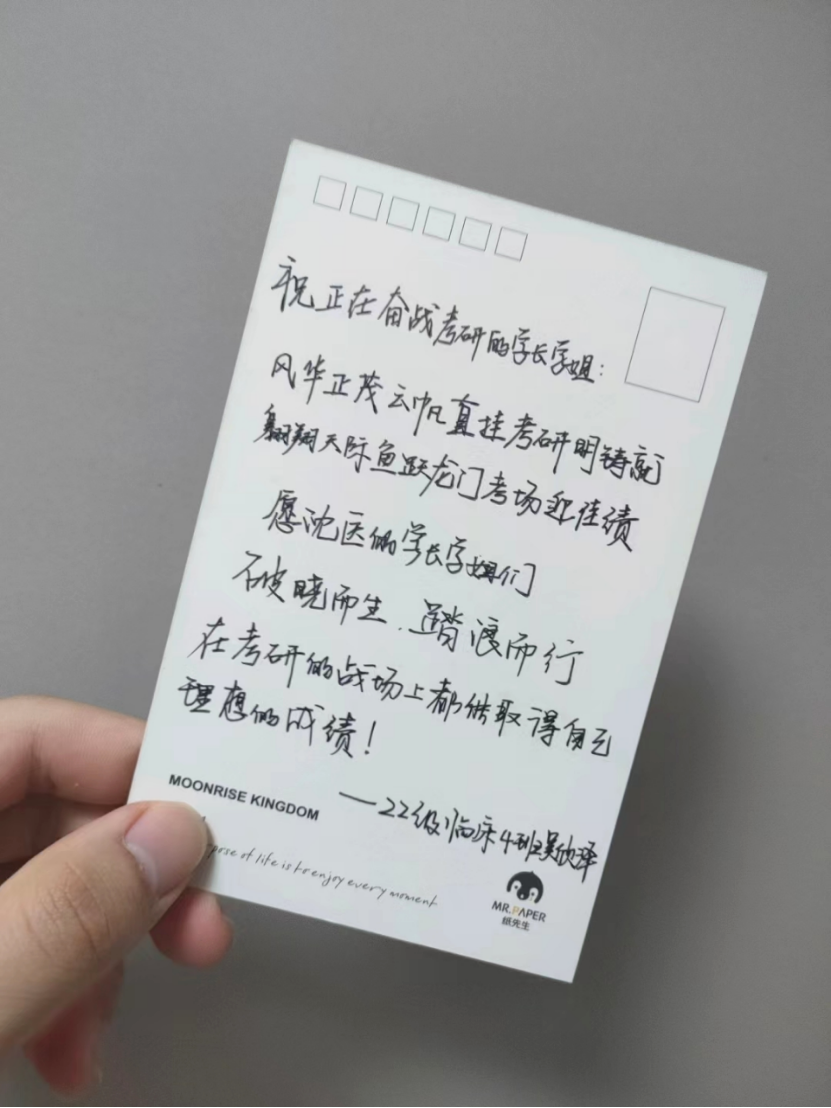 祝正在奋战考研的学长学姐：
风华正茂云帆直挂考研明铸就
翱翔天际鱼跃龙门考场迎佳绩
愿沈医的学长学姐们
破晓而生.踏浪而行
在考研的战场上都能取得自己
理想的成绩！
——22级临床4班吴欣泽
MOONRISE KINGDOM
of life is to enjoy every moment
MR.PAPER
纸先生